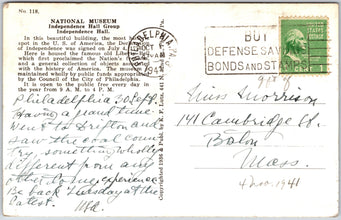 No. 118.
NATIONAL MUSEUM
Independence Hall Group
Independence Hall.
In this beautiful building, the most historic
spot in the U. S. of America, the Declaration
of Independence was signed on July 4,
Here is housed the famous old Liberty Bell
which first proclaimed the Nation's
and a general collection of objects associated
with the history of America. The museum is
maintained wholly by public funds appropriated
by the Council of the City of Philadelphia.
It is open to the public free every day
in the year from 9 A. M. to 4 P. M.
PHILADELPHIA
BUY
DEFENSE SAVINGS
BONDS AND STAMPS
Philadelphia 30 Sept.
Having a grand time
Went to Drifton and
saw the coal country
something wholly
different from any
other experience
Be back Tuesday at the
latest.
Miss Morrison
141 Cambridge St.
Boston
Mass.
4 Nov. 1941